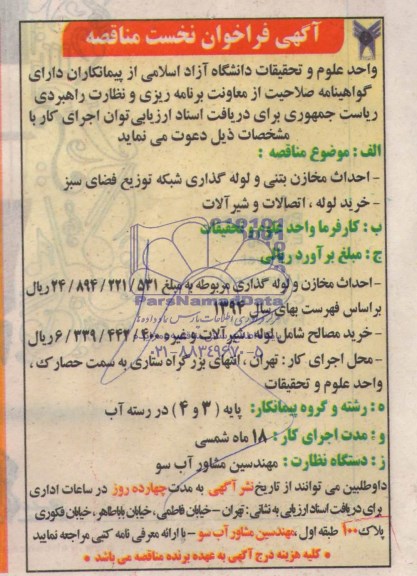 آگهی فراخوان نخست مناقصه
واحد علوم و تحقیقات دانشگاه آزاد اسلامی از پیمانکاران دارای
گواهینامه صلاحیت از معاونت برنامه ریزی و نظارت راهبردی
ریاست جمهوری برای دریافت اسناد ارزیابی توان اجرای کار با
مشخصات ذیل دعوت می نماید
الف : موضوع مناقصه :
- احداث مخازن بتنی و لوله گذاری شبکه توزیع فضای سبز
- خرید لوله ، اتصالات و شیرآلات
ب : کارفرما واحد علوم و تحقیقات
ج : مبلغ برآورد ریالی
- احداث مخازن و لوله گذاری مربوطه به مبلغ ۲۴/۸۹۴/۲۲۱/۵۳۱ ریال
براساس فهرست بهای سال ۱۳۹۴
ParsNamadData
- خرید مصالح شامل لوله ، شیرآلات و غیره ۶/۳۳۹/۴۴۲/۴۰۰ ریال
۰۲۱-۸۸۳۴۹۶۷۰-۵
- محل اجرای کار : تهران ، انتهای بزرگراه ستاری به سمت حصارک ،
واحد علوم و تحقیقات
ه : رشته و گروه پیمانکار: پایه ( ۳ و ۴ ) در رسته آب
و : مدت اجرای کار : ۱۸ ماه شمسی
ز : دستگاه نظارت : مهندسین مشاور آب سو
داوطلبین می توانند از تاریخ نشر آگهی به مدت چهارده روز در ساعات اداری
برای دریافت اسناد ارزیابی به نشانی : تهران - خیابان فاطمی ، خیابان باباطاهر ، خیابان فکوری
پلاک ۱۰۰ طبقه اول ،مهندسین مشاور آب سو - با ارائه معرفی نامه کتبی مراجعه نمایید
* کلیه هزینه درج آگهی به عهده برنده مناقصه می باشد *